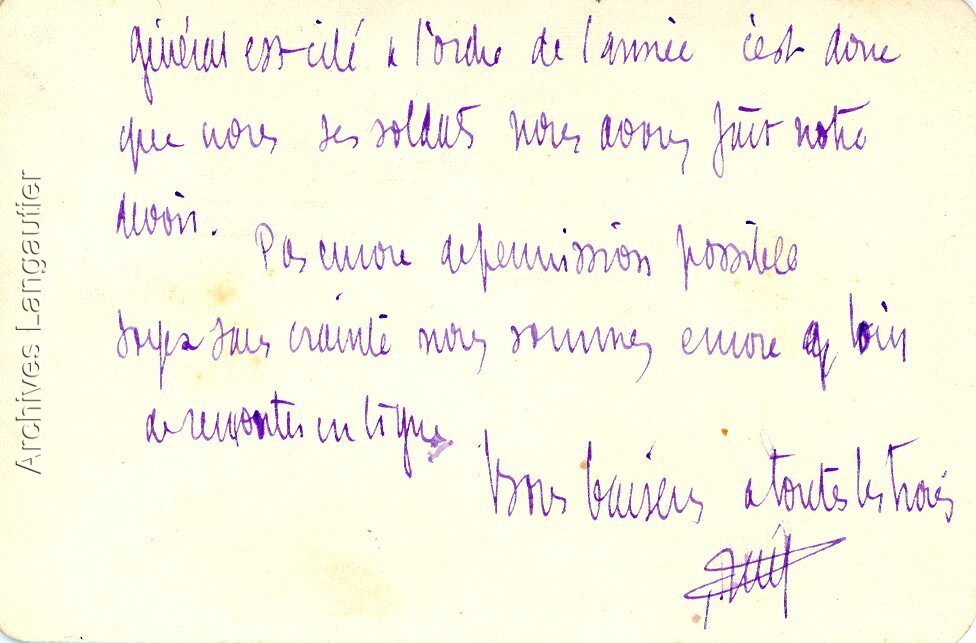 général est cité à l'ordre de l'année c'est donc
que nous ses soldats nous avons fait notre
devoir.
Pas encore de permission possible
soyez sans crainte nous sommes encore loin
de remonter en ligne
Bons baisers a toutes les trois
Archives Langautier